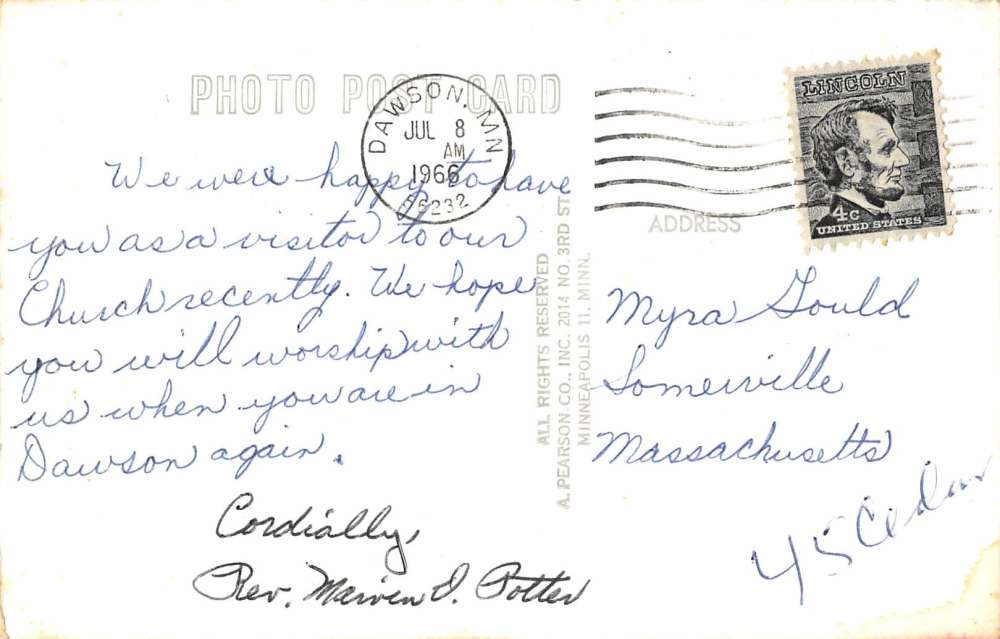 PHOTO POST CARD
DAWSON, MN
JUL 8
AM
1966
56232
LINCOLN
4c
UNITED STATES
ADDRESS
We were happy to have
you as a visitor to our
Church recently. We hope
you will worship with
us when you are in
Dawson again.
Cordially,
Rev. Marven D. Potter
ALL RIGHTS RESERVED
A. PEARSON CO., INC. 2014 NO. 3RD ST.
MINNEAPOLIS 11, MINN.
Myra Gould
Somerville
Massachusetts
45 Cedar